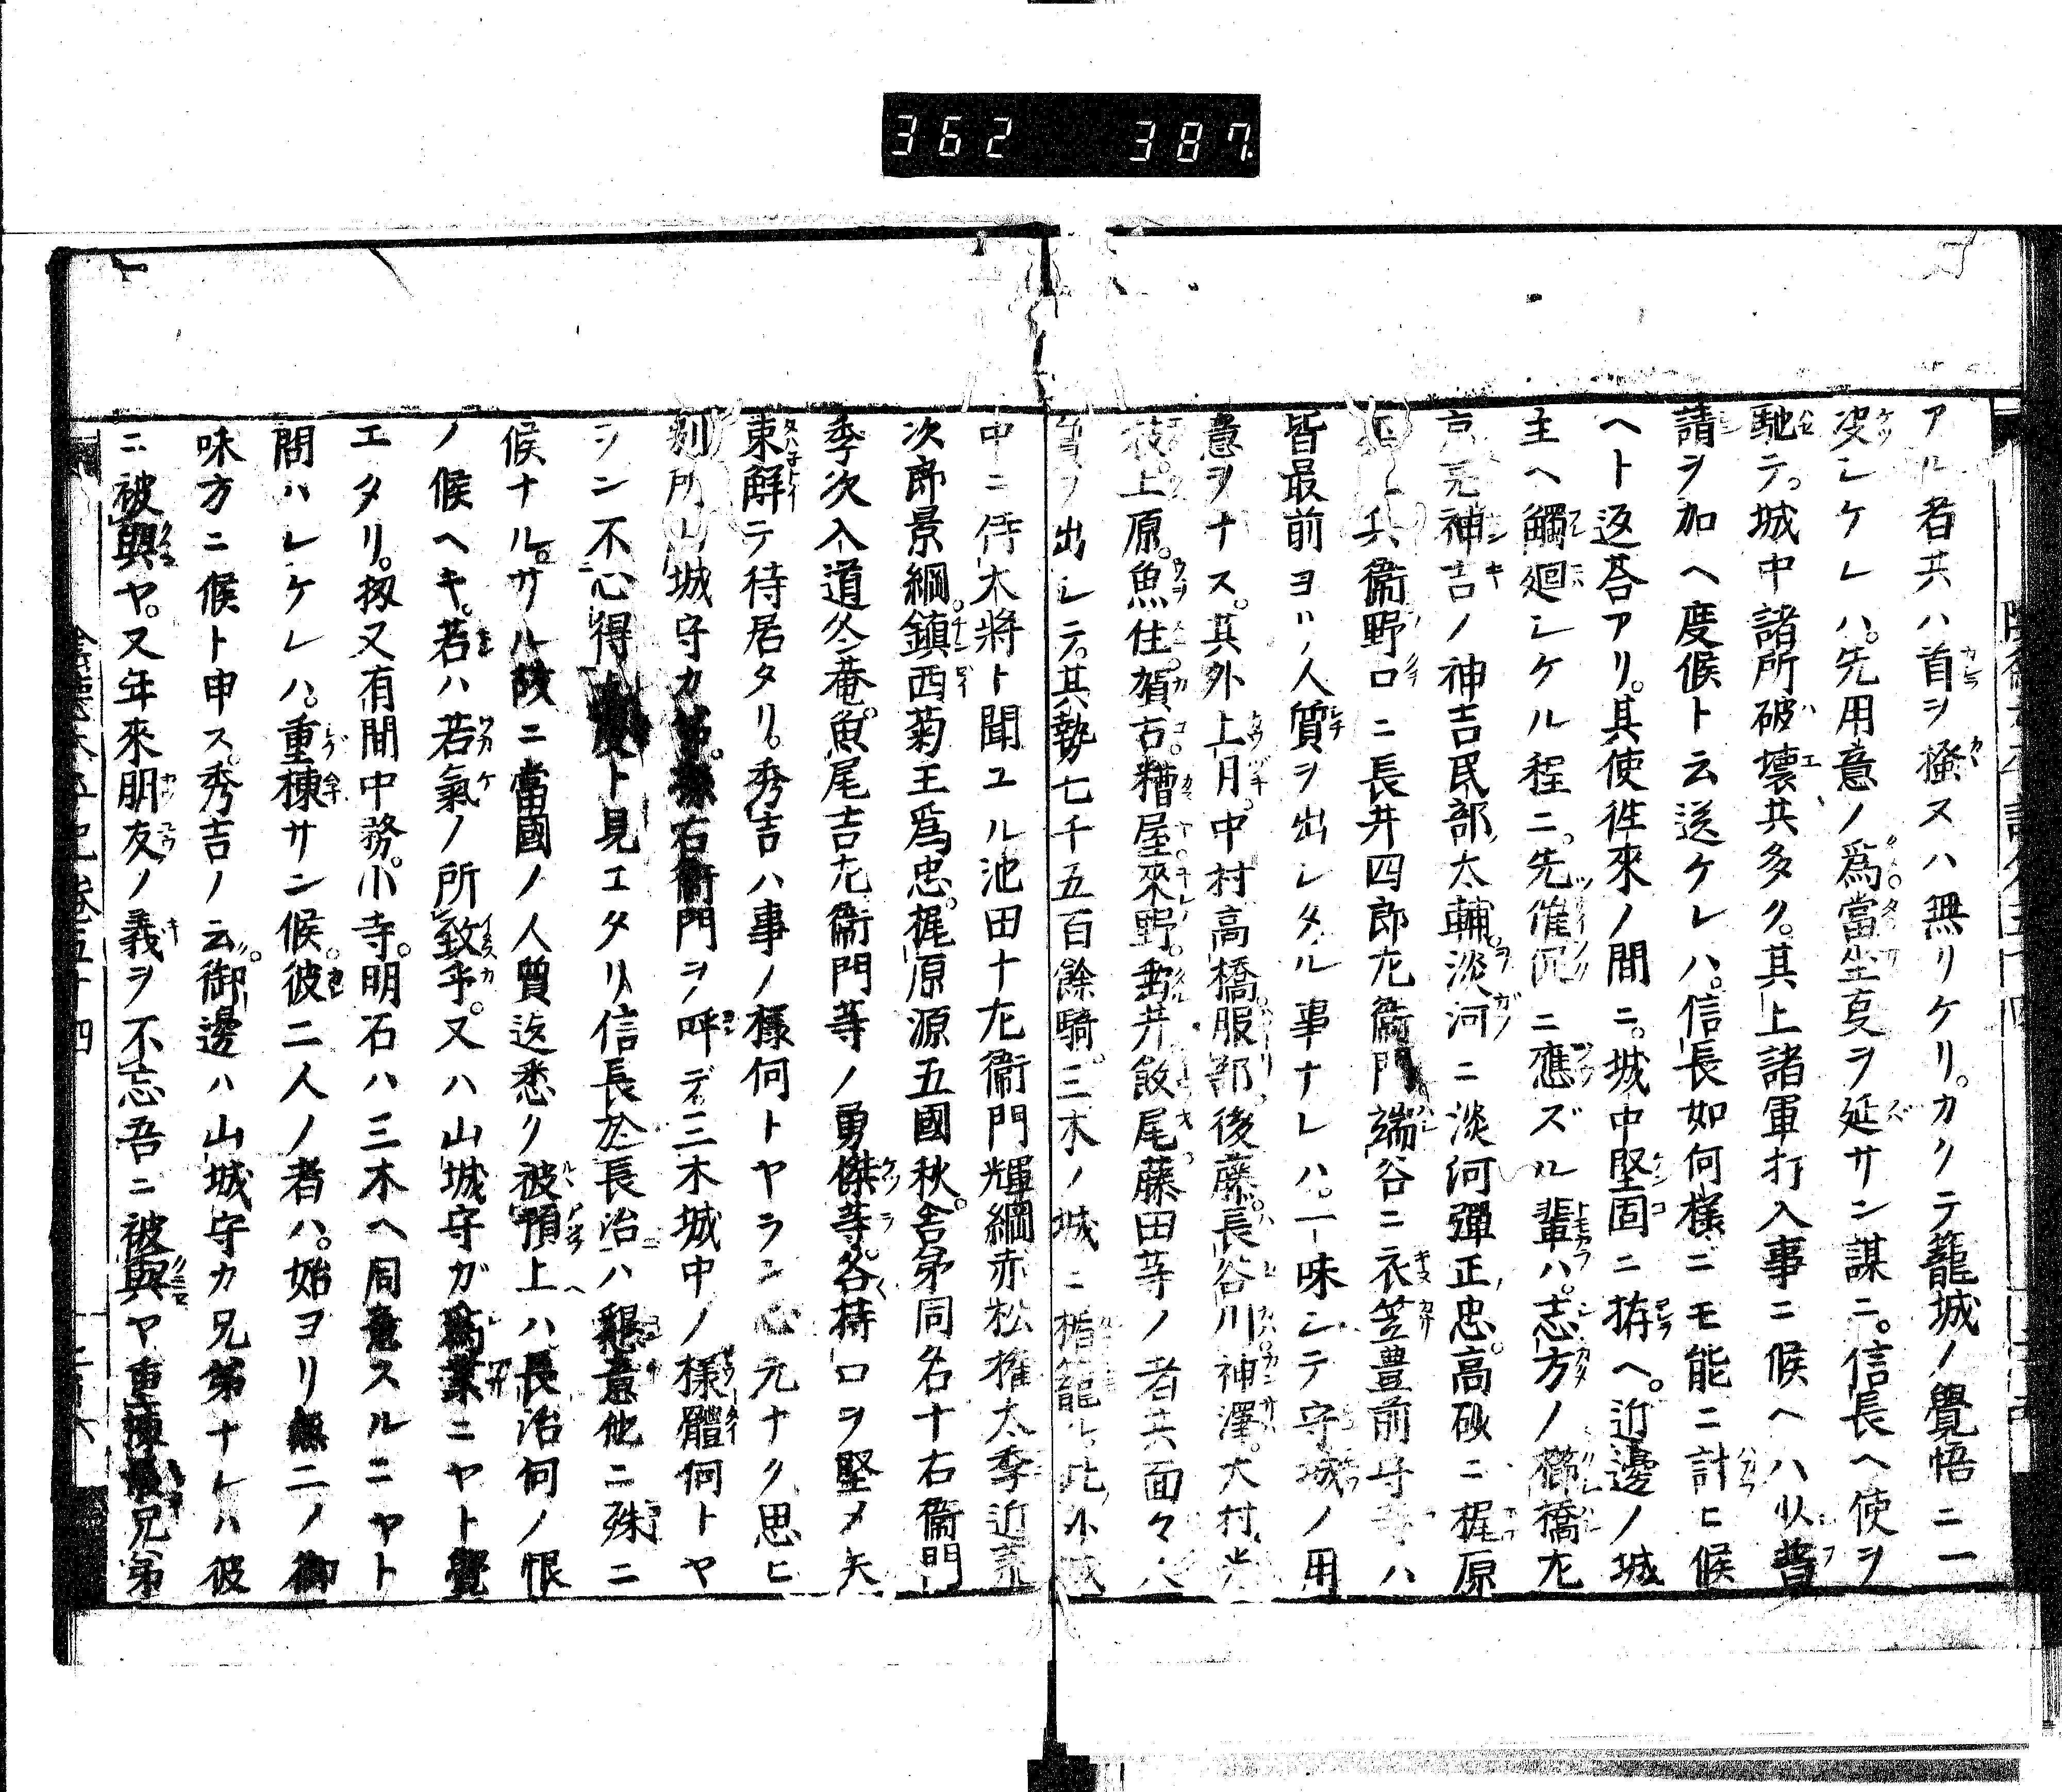 362 387
アル者共ハ首ヲ掻スハ無リケリ。カクテ籠城ノ覺悟ニ一
决シケレハ。先用意ノ爲當坐叓ヲ延サン謀ニ。信長ヘ使ヲ
馳テ。城中諸所破壞共多ク。其上諸軍打入事ニ候ヘハ以普
請ヲ加ヘ度候ト云送ケレハ。信長如何様ニモ能ニ計ヒ候
ヘト返荅アリ。其使徃來ノ間ニ。城中堅固ニ拵ヘ。近邊ノ城
主ヘ觸廻シケル程ニ。先催促ニ應ズル輩ハ。志方ノ櫛橋左
京亮神吉ノ神吉民部太輔。淡河ニ淡河彈正忠。高砂ニ梶原
兵衞野口ニ長井四郎左衞門端谷ニ衣笠豊前守ハ
皆最前ヨリ人質ヲ出シタル事ナレハ。一味シテ守城ノ用
意ヲナス。其外上月。中村高橋。服部。後藤。長谷川神澤。大村
上原。魚住賀古糟屋來野。井飯尾。藤田等ノ者共面々人
質ヲ出シテ。其勢七千五百餘騎。三木ノ城ニ楯籠ル。此外城
中ニ侍大將ト聞ユル池田十左衞門輝綱赤松權太季近荒
次郎景綱。鎮西菊王爲忠。梶原源五國秋。舎弟同名十右衞門
季次入道冬菴。魚尾吉左衞門等ノ勇傑等。各持口ヲ堅メ矢
束解テ待居タリ。秀吉ハ事ノ樣何トヤラン心元ナク思ヒ
別所山城守カ弟。孫右衞門ヲ呼デ三木城中ノ樣體何トヤ
ラン不心得ト見エタリ信長於長治ハ懇意他ニ殊ニ
候ナル。サル故ニ當國ノ人質迄悉ク被預上ハ長治何ノ恨
ノ候ヘキ。若ハ若氣ノ所致乎。又ハ山城守ガ爲業ニヤト覺
エタリ。扨又有間中務。小寺。明石ハ三木ヘ同意スルニヤト
問ハレケレハ。重棟サン候。彼二人ノ者ハ。始ヨリ無二ノ御
味方ニ候ト申ス。秀吉ノ云。御邊ハ山城守カ兄弟ナレハ彼
ニ被與ヤ。又年來朋友ノ義ヲ不忘吾ニ被與ヤ重棟兄弟